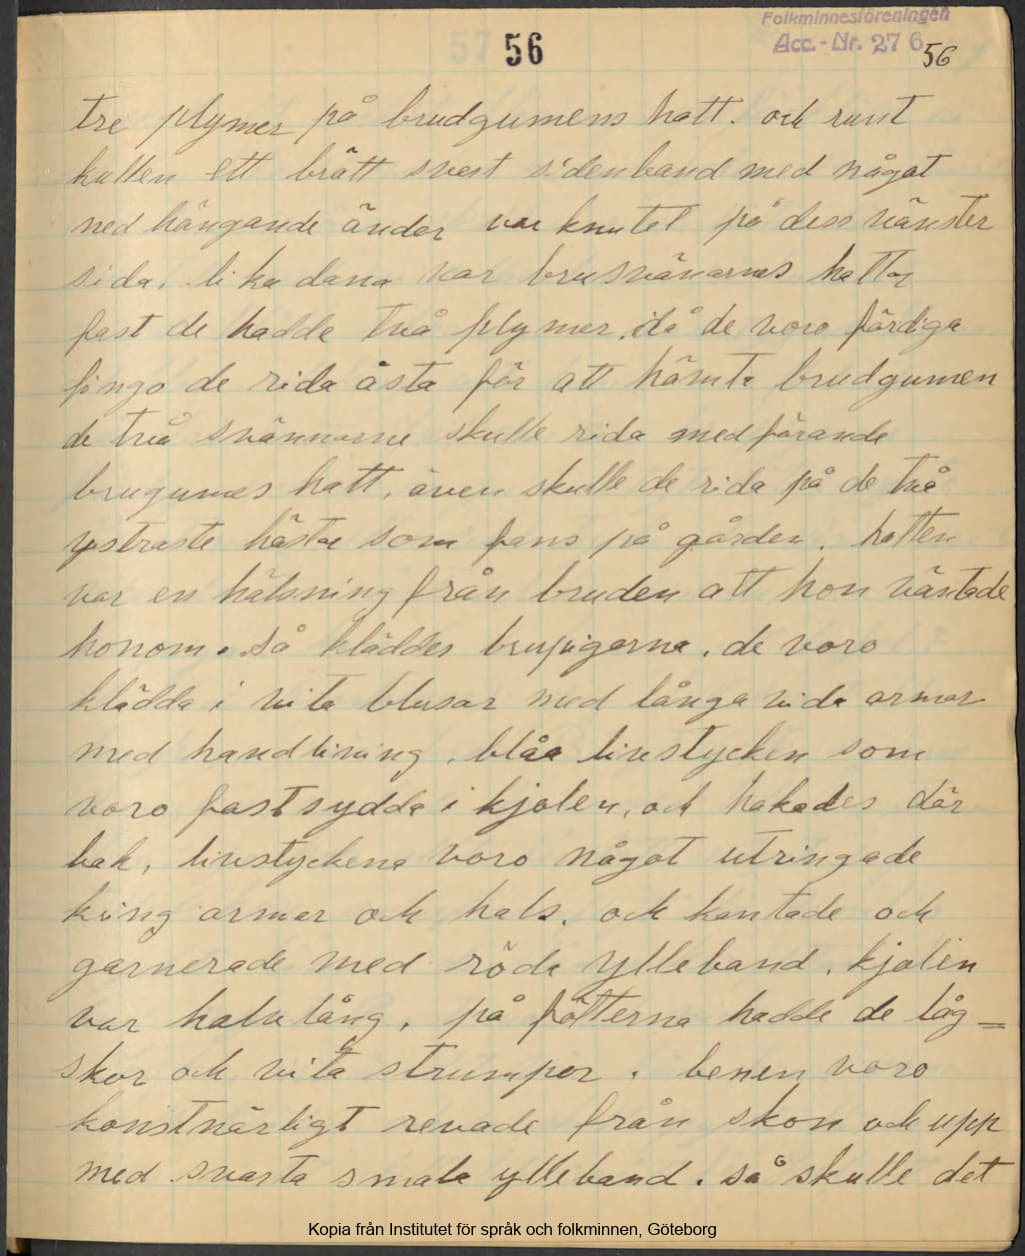 56
Folkminnesföreningen
Acc.-Nr. 276
56
tre plymer på brudgumens hatt. och runt
kullen ett brått svart sidenband med något
ned hängande ändar var knutet på dess vänster
sida. lika dana var brusvänarnas hattar
fast de hadde två plymer. då de voro färdiga
fingo de rida åsta för att hämta brudgumen
de två svännarne skulle rida medförande
brugumes hatt, även skulle de rida på de två
ystraste hästar som fans på gården. hatten
var en hälsning från bruden att hon väntade
honom. så kläddes brupigorna. de voro
klädda i vita blusar med långa vida armar
med handlining. blåa livstycken som
voro fastsydda i kjolen, och hakades där
bak, livstyckena voro något utringade
kring armar och hals. och kantade och
garnerade med röda ylleband. kjolen
var halv lång. på fötterna hadde de låg=
skor och vita strumpor. benen voro
konstnärligt revade från skon och upp
med svarta smala ylleband. så skulle det
Kopia från Institutet för språk och folkminnen, Göteborg